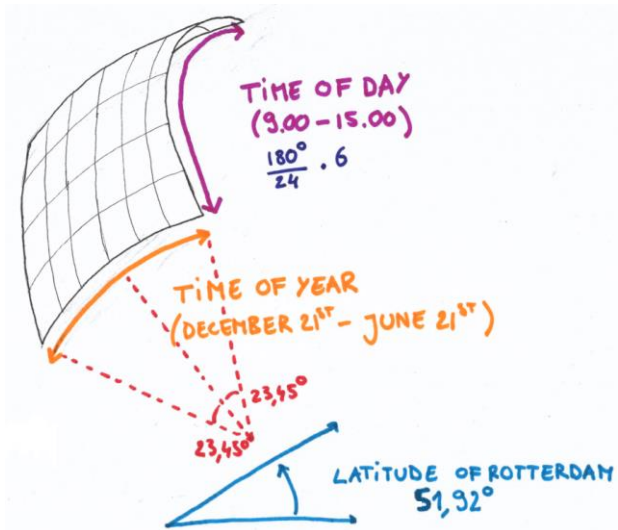 TiME OF DAY
(9.00 - 15.00)
180°
24
. 6
TiME OF YEAR
(DECEMBER 21ST - JUNE 21ST)
23,45°
23,45°
LATiTUDE OF ROTTERDAM
51,92°